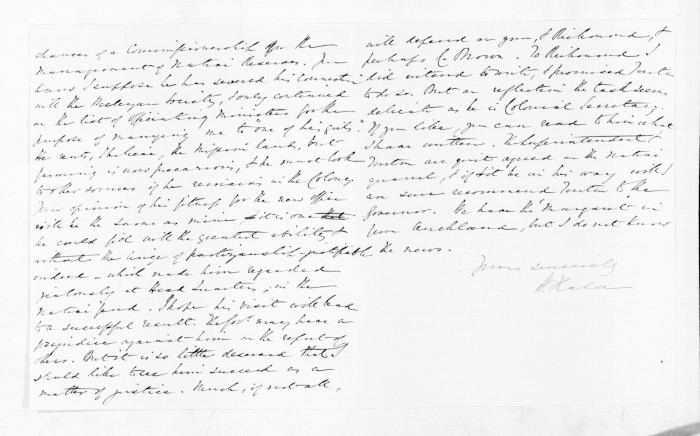 chances of a Commissionership for the
Management of Native Reserves. You
know I suppose he has severed his connection
with the Wesleyan Society, & only continued
on the list of officiating Ministers for the
purpose of marrying me to one of his girls.
He rents, I believe, the Mission lands, but
farming is now precarious, & he must look
to other sources if he remains in the Colony.
Your opinion of his fitness for the new office
will be the same as mine it is one that
he could fill with the greatest ability, &
without the tinge of partizanship
indeed - which made him regarded
jealously at Head Quarters, in the
Native feud. I hope his visit will lead
to a successful result. The Govt may have a
prejudice against him on the report of
others. But it is so little deserved that I
should like to see him succeed as a
matter of justice. Much, if not all,
will depend on you, & Richmond, &
perhaps C. Brown. To Richmond I
did intend to write, & promised Turton
to do so. But on reflection the task seems
delicate as he is Colonial Secretary.
If you like, you can read to him what
I have written. The Superintendent &
Turton are quite agreed on the Native
quarrel, & if it be in his way will I
am sure recommend Turton to the
Governor. We hear the "Margaret" is in
from Auckland, but I do not know
the news.
Yours sincerely
H Halse